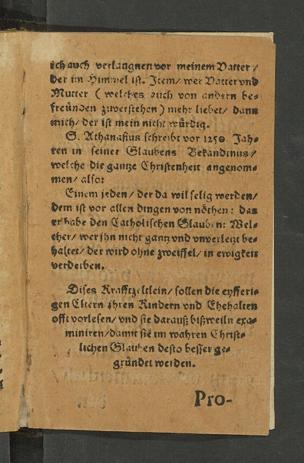 ich auch verlaugnen vor meinem Vatter /
der im Himmel ist. Item / wer Vatter vnd
Mutter ( welches auch von andern be-
freünden zuverstehen ) mehr liebet / dann
mich / der ist mein nicht würdig.
S. Athanasius schreibt vor 1250 Jah-
ren in seiner Glaubens Bekandtnus /
welche die gantze Christenheit angenom-
men / also:
Einem jeden / der da wil selig werden /
dem ist vor allen dingen von nöthen: das
er habe den Catholischen Glauben: Wel-
cher / wer jhn nicht gantz vnd vnverletzt be-
haltet / der wird ohne zweiffel / in ewigkeit
verderben.
Dises Kraffтzeltlein / sollen die eyfferi-
gen Eltern jhren Kindern vnd Ehehalten
offt vorlesen / vnd sie darauß bißweiln exa-
miniren / damit sie im wahren Christ-
lichen Glauben desto besser ge-
gründet werden.
Pro-